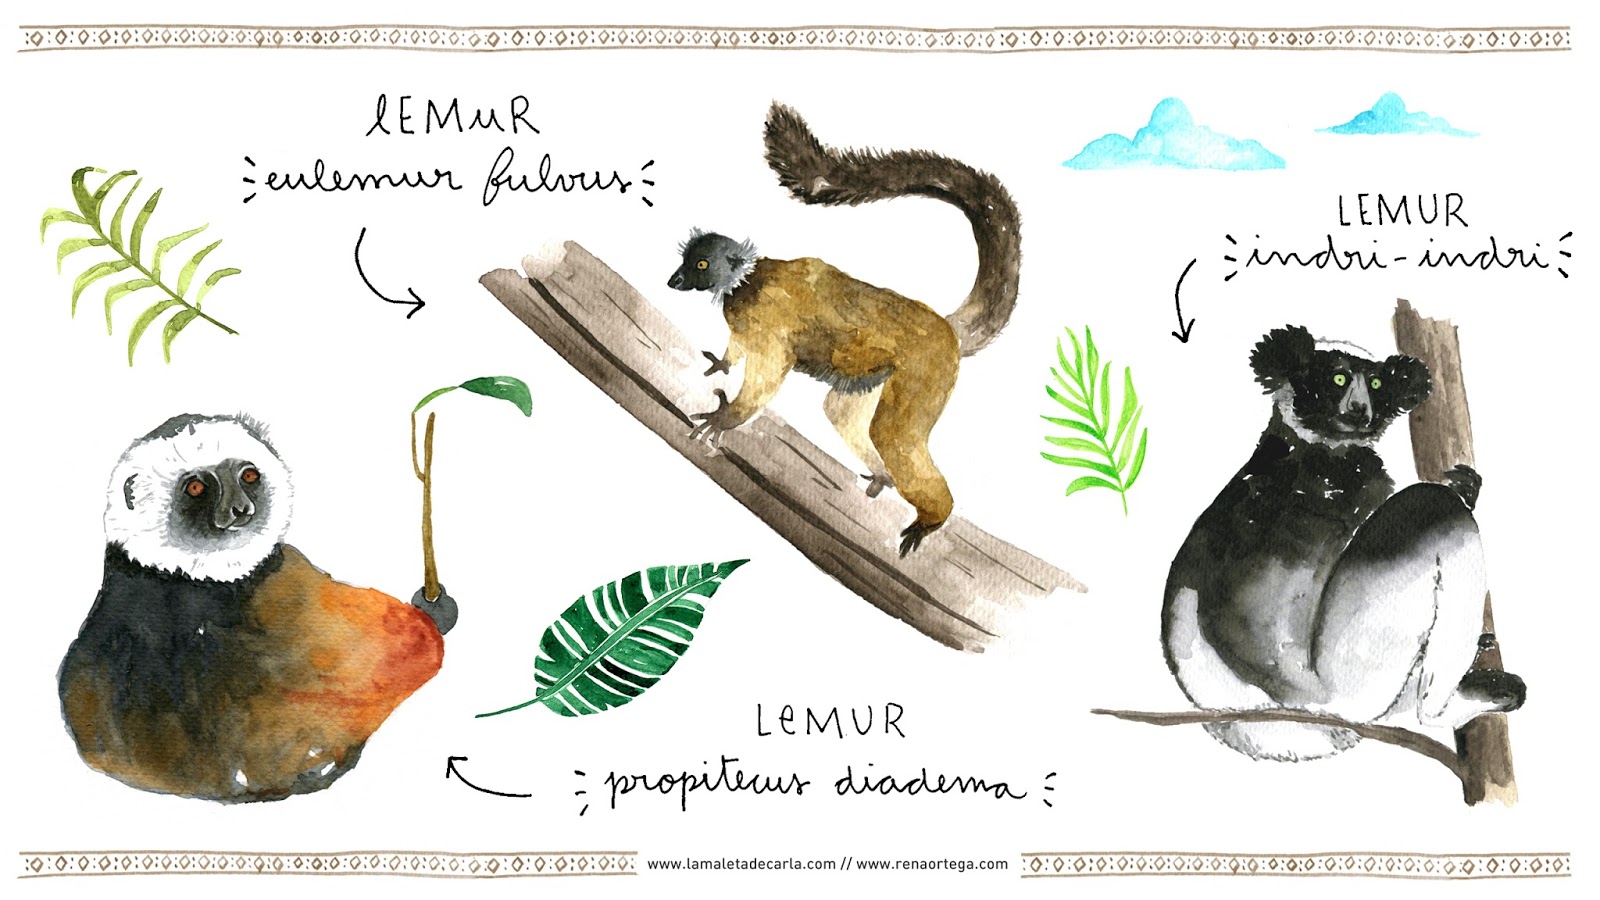 lEMuR
eulemur fulvus
LEMUR
indri-indri
LeMUR
propitecus diadema
www.lamaletadecarla.com // www.renaortega.com